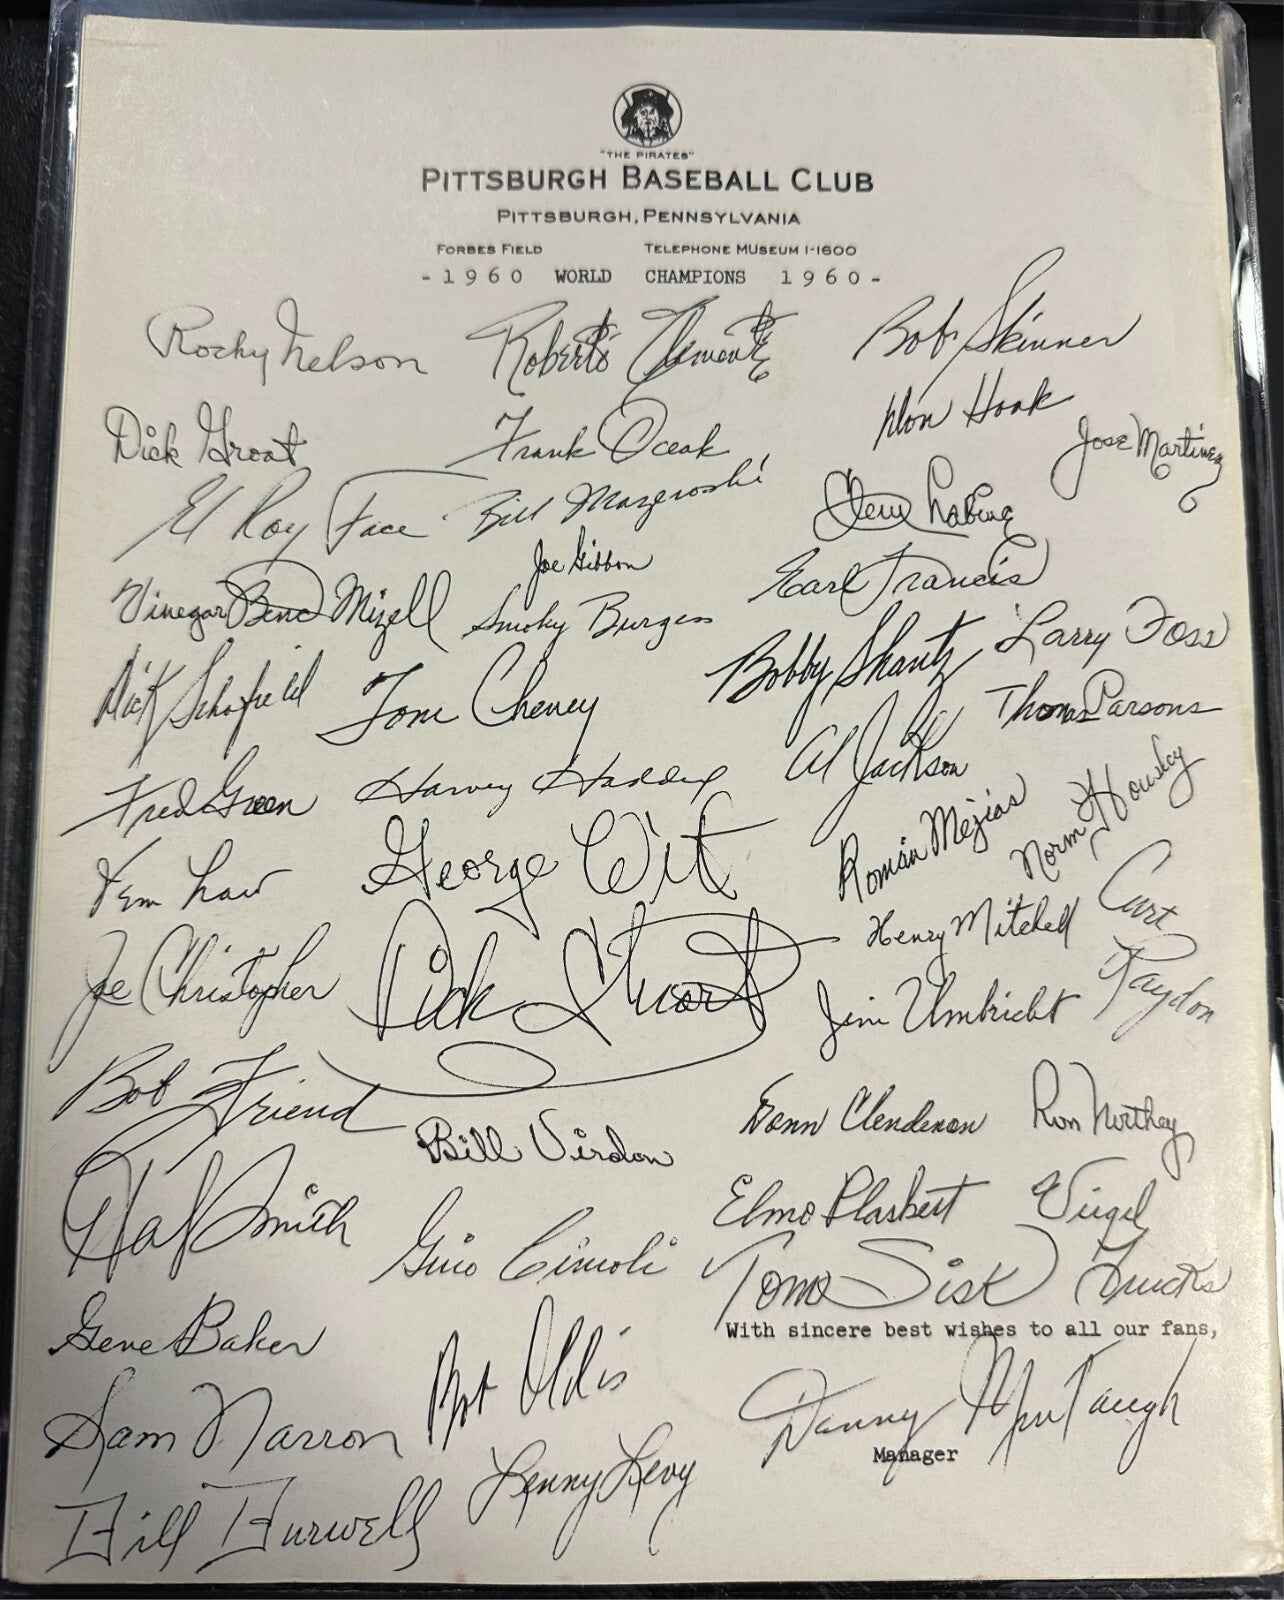 "THE PIRATES"
PITTSBURGH BASEBALL CLUB
PITTSBURGH, PENNSYLVANIA
FORBES FIELD TELEPHONE MUSEUM 1-1600
-1960 WORLD CHAMPIONS 1960-
Rocky Nelson Roberto Clemente Bob Skinner
Dick Groat Frank Oceak Don Hoak Jose Martinez
El Roy Face Bill Mazeroski Clem Labine
Joe Gibbon Earl Francis
Vinegar Bend Mizell Smoky Burgess Larry Foss
Dick Schofield Tom Cheney Bobby Shantz Thomas Parsons
Fred Green Harvey Haddix Al Jackson
Vern Law George Witt Román Mejias Norm Housley
Joe Christopher Dick Stuart Henry Mitchell Curt Raydon
Jim Umbricht
Bob Friend Bill Virdon Donn Clendenon Ron Northey
Hal Smith Gino Cimoli Elmo Plaskett Virgil Trucks
Tom Sisk
Gene Baker Bob Oldis With sincere best wishes to all our fans,
Sam Narron Lenny Levy Danny Murtaugh
Manager
Bill Burwell